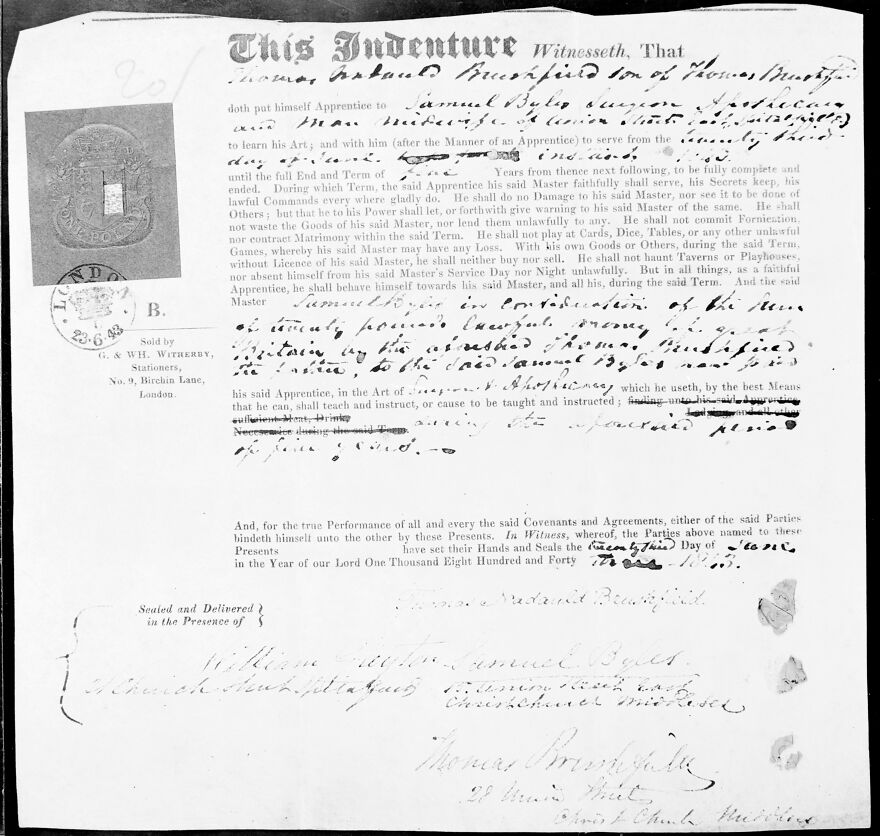 20/
This Indenture Witnesseth, That
Thomas Nadauld Brushfield son of Thomas Brushfield
doth put himself Apprentice to Samuel Byles Surgeon Apothecary
and Man midwife of Union Street East, Spitalfields
to learn his Art; and with him (after the Manner of an Apprentice) to serve from the twenty third
day of June instant 1843.
until the full End and Term of five Years from thence next following, to be fully complete and
ended. During which Term, the said Apprentice his said Master faithfully shall serve, his Secrets keep, his
lawful Commands every where gladly do. He shall do no Damage to his said Master, nor see it to be done of
Others; but that he to his Power shall let, or forthwith give warning to his said Master of the same. He shall
not waste the Goods of his said Master, nor lend them unlawfully to any. He shall not commit Fornication,
nor contract Matrimony within the said Term. He shall not play at Cards, Dice, Tables, or any other unlawful
Games, whereby his said Master may have any Loss. With his own Goods or Others, during the said Term,
without Licence of his said Master, he shall neither buy nor sell. He shall not haunt Taverns or Playhouses,
nor absent himself from his said Master's Service Day nor Night unlawfully. But in all things, as a faithful
Apprentice, he shall behave himself towards his said Master, and all his, during the said Term. And the said
Master Samuel Byles in consideration of the Sum
of twenty pounds lawful money of great
Britain by the aforesaid Thomas Brushfield
the father, to the said Samuel Byles now paid
his said Apprentice, in the Art of Surgeon & Apothecary which he useth, by the best Means
that he can, shall teach and instruct, or cause to be taught and instructed; finding unto his said Apprentice
sufficient Meat, Drink, Lodging and all other
Necessaries during the said Term during the aforesaid period
of five years.
And, for the true Performance of all and every the said Covenants and Agreements, either of the said Parties
bindeth himself unto the other by these Presents. In Witness, whereof, the Parties above named to these
Presents have set their Hands and Seals the twenty third Day of June
in the Year of our Lord One Thousand Eight Hundred and Forty three 1843.
LONDON
23·6·43
B.
Sold by
G. & WH. WITHERBY,
Stationers,
No. 9, Birchin Lane,
London.
Sealed and Delivered
in the Presence of
Thomas Nadauld Brushfield.
William Samuel Byles.
Church Street Spitalfields
Union Street East
Christchurch Middlesex
Thomas Brushfield
28 Union Street
Christ Church Middlesex